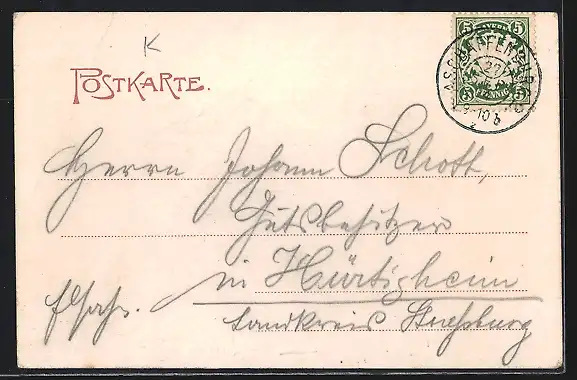 K
POSTKARTE.
5 BAYERN 5
5 PFENNIG 5
ASCHAFFENBURG
9-10
Herrn Johann Schott,
Gutsbesitzer
in Hürtigheim
Elsaß.
Landkreis Straßburg